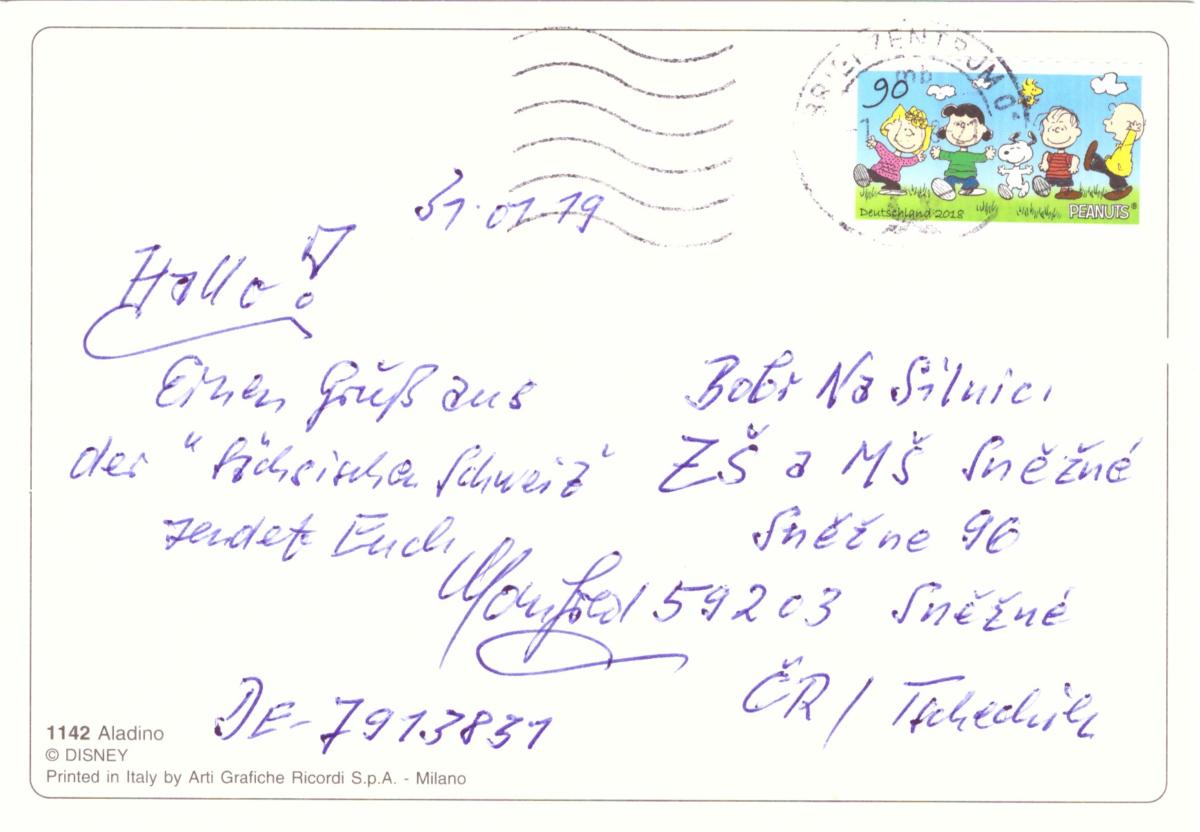 BRIEFZENTRUM 0
mb
90
Deutschland 2018
PEANUTS®
31.01.19
Hallo!
Einen Gruß aus
der "Sächsischen Schweiz"
sendet Euch
Manfred
DE-7913831
Bobr Na Silnici
ZŠ a MŠ Sněžné
Sněžne 96
59203 Sněžné
ČR / Tschechien
1142 Aladino
© DISNEY
Printed in Italy by Arti Grafiche Ricordi S.p.A. - Milano